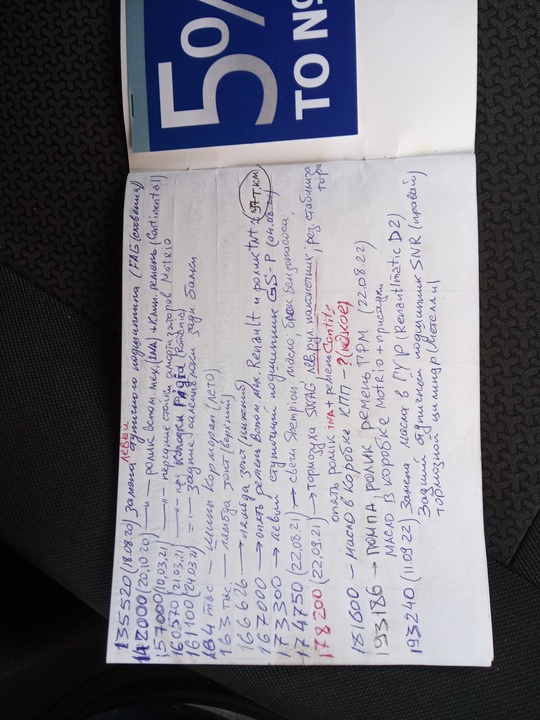 5%
ТО №
135520 (18.08.20) замена левый ступичного подшипника (FAG (словения))
142000 (20.10.20) —"— ролик вспом. мех. (INA) + клин. ремень (Continental)
157000 (10,03,21) —"— передние стойки амортизаторов Motrio
160570 (21.03,21) —"— колодки (Romania)
161100 (24.03.21) — задние сайлентблоки зади балки
164 тыс — шины Корморан (лето)
163 тыс. — лямбда зонт (верхний)
166626 → лямбда зонт (нижний)
167000 → опять ремень вспом мех Renault и ролик tnt (97 т.км)
173300 → левый ступичный подшипник GS-P (04.08.21)
174750 (22,08.21) → свечи Shempion масло, блок бензонасоса,
178200 (22,09.21) → тормозуха SWAG лев рул. наконечник; рез стабилизатора
опять ролик INA + ремень Contit.
181800 — масло в коробке КПП - ? (какое)
193186 → ПОМПА, ролик ремень ГРМ (22.08.22)
масло в коробке Motrio + присадки
193240 (11.09.22) Замена масла в ГУР (Renaultmatic D2)
Задний ступичный подшипник SNR (правый)
тормозной цилиндр (Метелли)